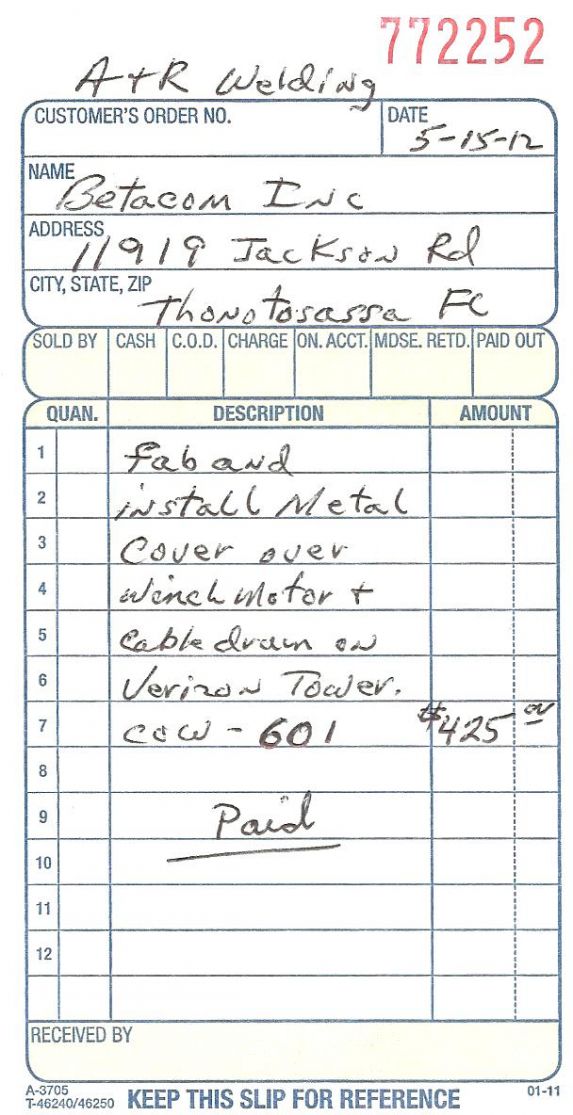 772252
A+R Welding
CUSTOMER'S ORDER NO. DATE
5-15-12
NAME
Betacom Inc
ADDRESS
11919 Jackson Rd
CITY, STATE, ZIP
Thonotosassa FL
SOLD BY CASH C.O.D. CHARGE ON. ACCT. MDSE. RETD. PAID OUT
QUAN. DESCRIPTION AMOUNT
1 Fab and
2 install Metal
3 Cover over
4 Winch Motor +
5 Cable drum on
6 Verizon Tower.
7 COW - 601 $425 00
8
9 Paid
10
11
12
RECEIVED BY
A-3705
T-46240/46250 KEEP THIS SLIP FOR REFERENCE 01-11